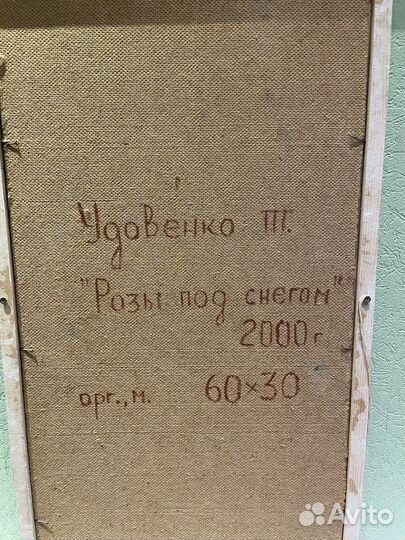 Удовенко Т.
"Розы под снегом"
2000г
орг., м. 60×30
Avito